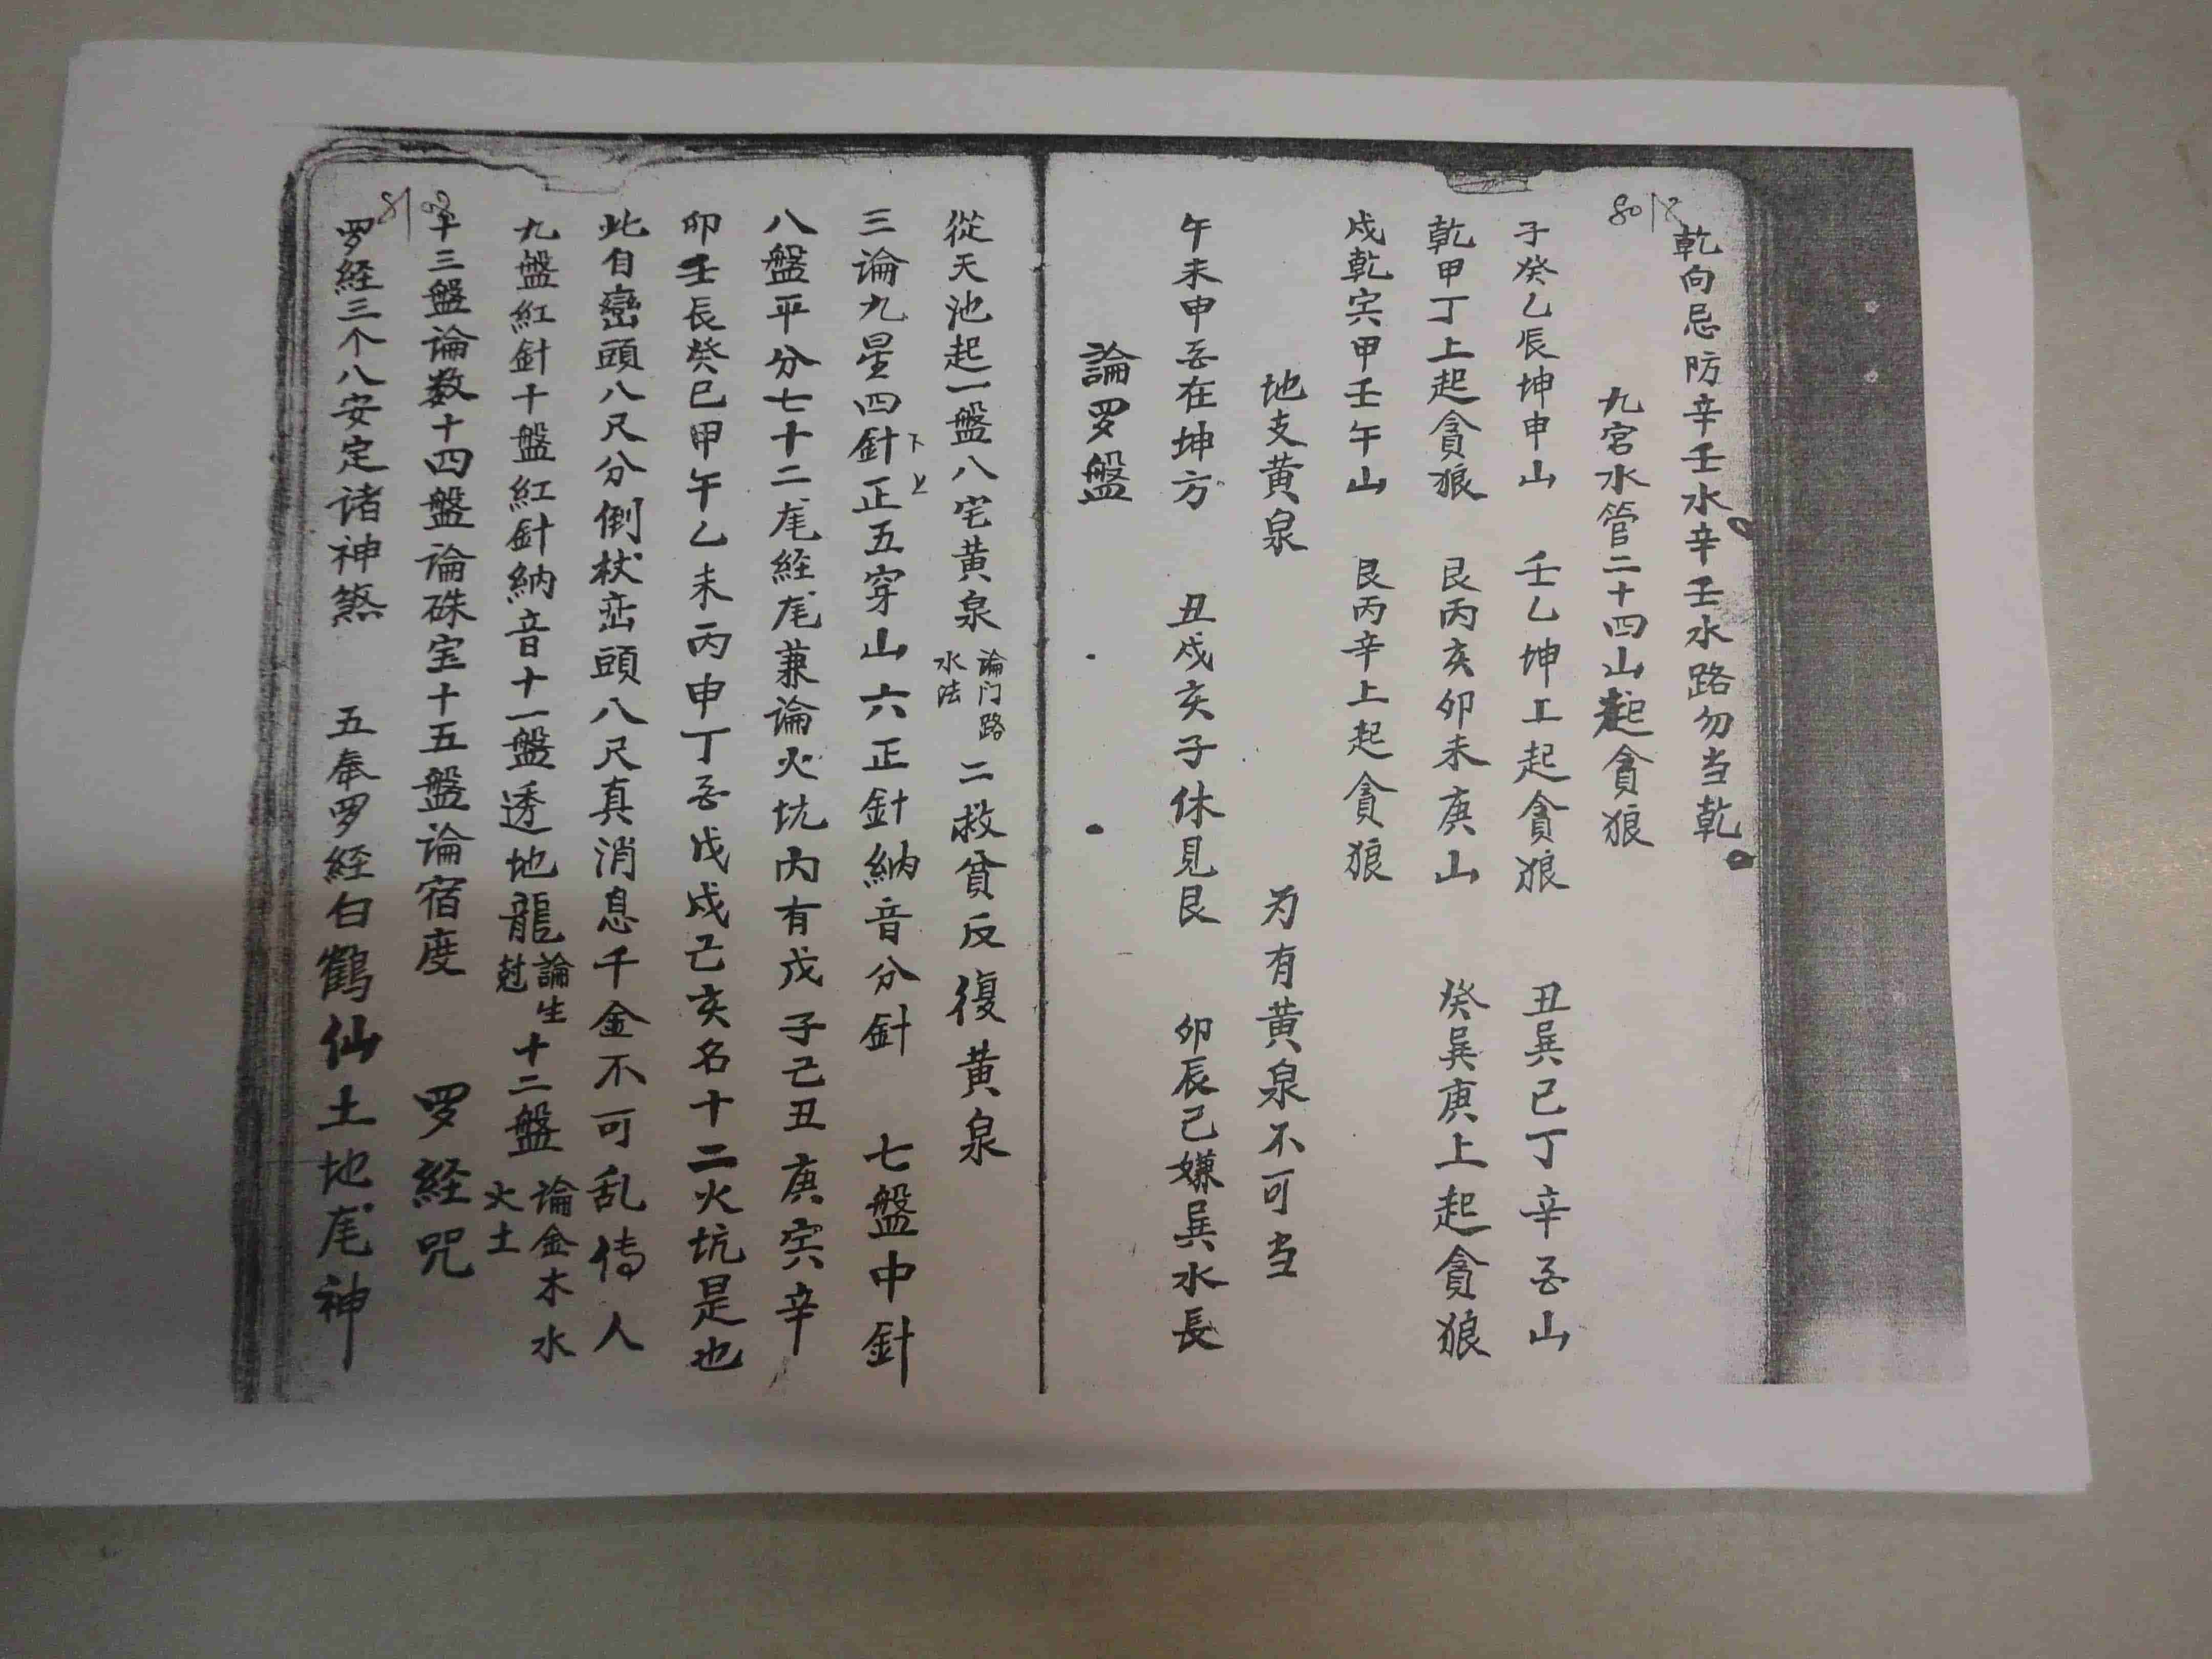 乾向忌防辛壬水辛壬水路勿当乾
九宮水管二十四山起貪狼
子癸乙辰坤申山 壬乙坤工起貪狼 丑巽巳丁辛酉山
乾甲丁上起貪狼 艮丙亥卯未庚山 癸巽庚上起貪狼
戍乾寅甲壬午山 艮丙辛上起貪狼
地支黄泉 为有黄泉不可当
午未申酉在坤方 丑戍亥子休見艮 卯辰己嫌巽水長
論罗盤
從天池起一盤八宅黄泉 論门路水法 二救貧反復黄泉
三論九星四針正五穿山六正針納音分針 七盤中針
下上
八盤平分七十二尾経尾兼論火坑内有戊子己丑庚寅辛
卯壬長癸巳甲午乙未丙申丁酉戊戍己亥名十二火坑是也
此自巒頭八尺分倒杖巒頭八尺真消息千金不可乱传人
九盤紅針十盤紅針納音十一盤透地龍 論生尅 十二盤 論金木水火土
十三盤論数十四盤論硃宝十五盤論宿度 罗経咒
罗経三个八安定诸神煞 五奉罗経白鶴仙土地尾神